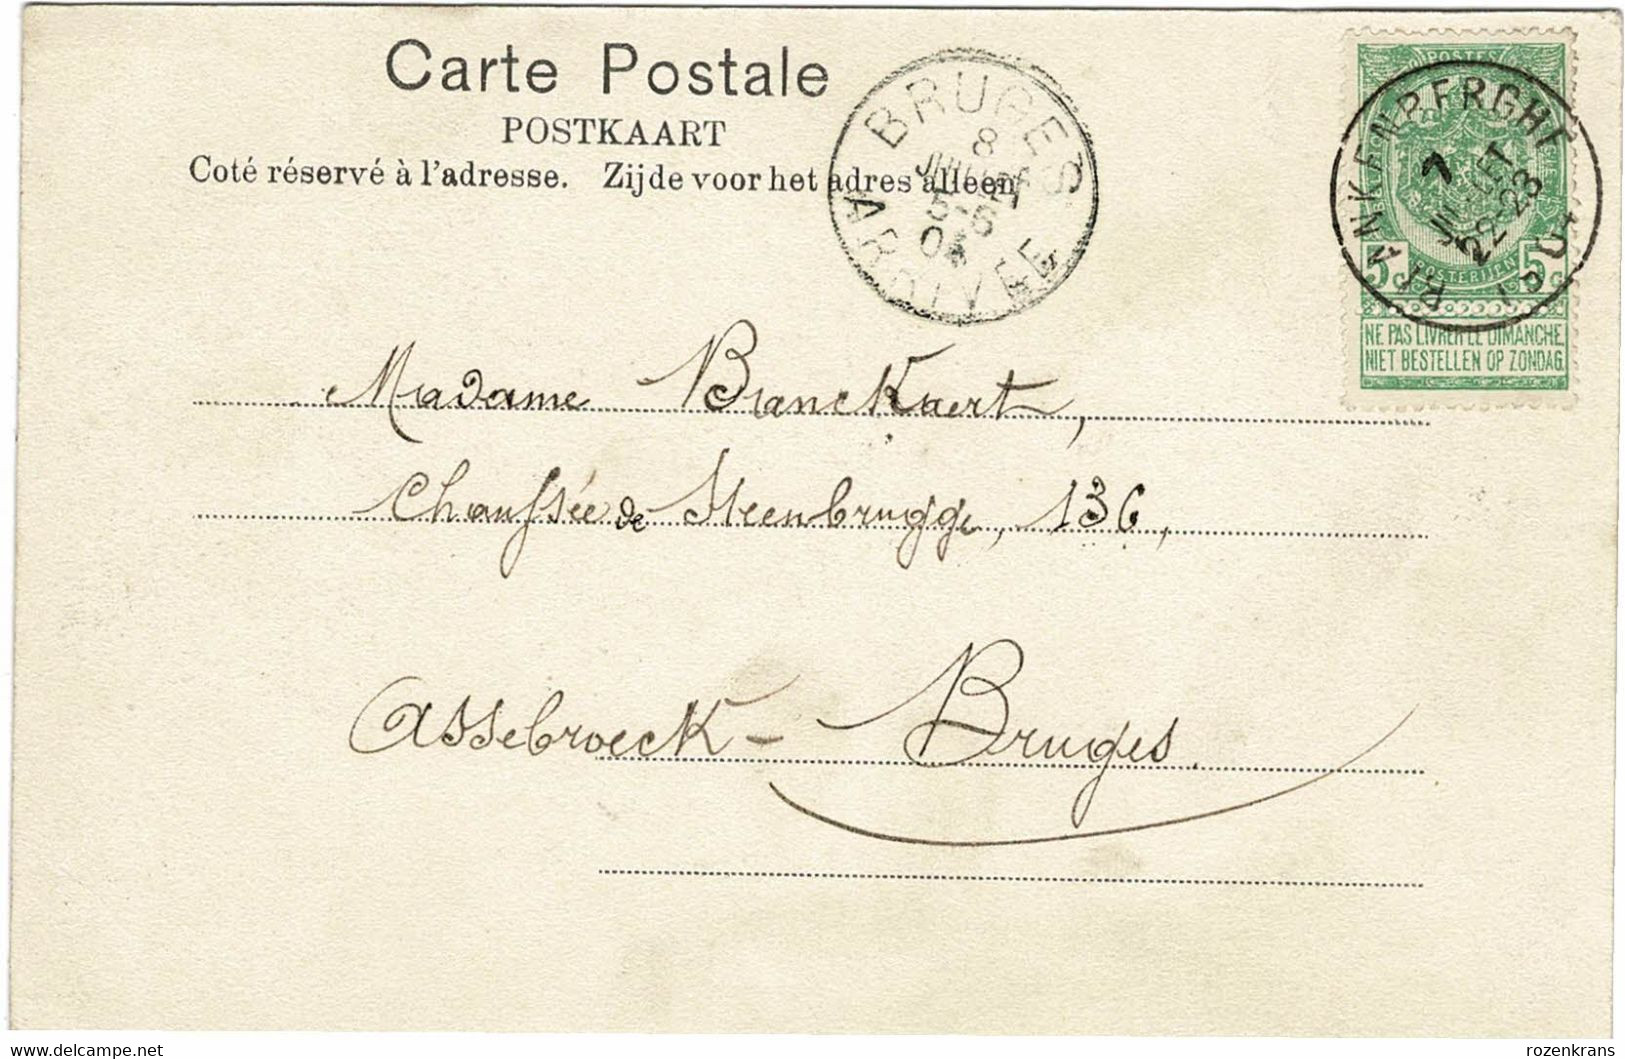 Carte Postale
POSTKAART
Coté réservé à l'adresse. Zijde voor het adres alleen
BRUGES
8
JUILLET
5-6
04
ARRIVÉE
POSTES
BLANKENBERGHE
7
JUILLET
22-23
1904
5c POSTERIJEN 5c
NE PAS LIVRER LE DIMANCHE
NIET BESTELLEN OP ZONDAG.
Madame Blanckaert,
Chaussée de Steenbrugge, 136,
Assebroeck - Bruges.
www.delcampe.net
rozenkrans